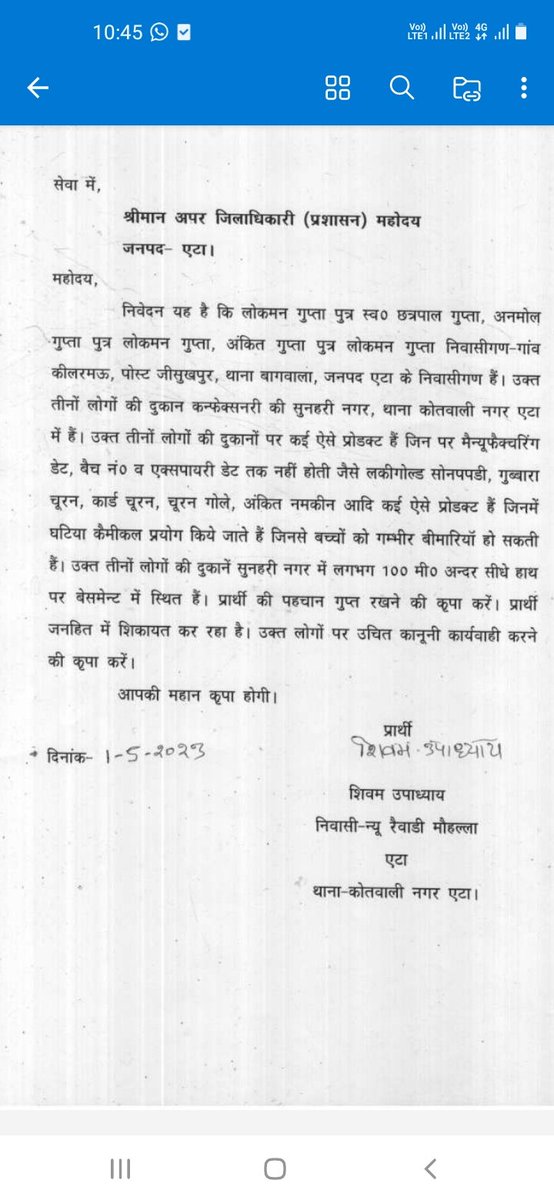 10:45
Vo) LTE1 Vo) LTE2 4G
सेवा में,
श्रीमान अपर जिलाधिकारी (प्रशासन) महोदय
जनपद- एटा।
महोदय,
निवेदन यह है कि लोकमन गुप्ता पुत्र स्व० छत्रपाल गुप्ता, अनमोल
गुप्ता पुत्र लोकमन गुप्ता, अंकित गुप्ता पुत्र लोकमन गुप्ता निवासीगण-गांव
कीलरमऊ, पोस्ट जीसुखपुर, थाना बागवाला, जनपद एटा के निवासीगण हैं। उक्त
तीनों लोगों की दुकान कन्फेक्सनरी की सुनहरी नगर, थाना कोतवाली नगर एटा
में हैं। उक्त तीनों लोगों की दुकानों पर कई ऐसे प्रोडक्ट हैं जिन पर मैन्यूफैक्चरिंग
डेट, बैच नं० व एक्सपायरी डेट तक नहीं होती जैसे लकीगोल्ड सोनपपडी, गुब्बारा
चूरन, कार्ड चूरन, चूरन गोले, अंकित नमकीन आदि कई ऐसे प्रोडक्ट हैं जिनमें
घटिया कैमीकल प्रयोग किये जाते हैं जिनसे बच्चों को गम्भीर बीमारियॉ हो सकती
हैं। उक्त तीनों लोगों की दुकानें सुनहरी नगर में लगभग 100 मी० अन्दर सीधे हाथ
पर बेसमेन्ट में स्थित हैं। प्रार्थी की पहचान गुप्त रखने की कृपा करें। प्रार्थी
जनहित में शिकायत कर रहा है। उक्त लोगों पर उचित कानूनी कार्यवाही करने
की कृपा करें।
आपकी महान कृपा होगी।
प्रार्थी
दिनांक- 1-5-2023
शिवम उपाध्याय
शिवम उपाध्याय
निवासी-न्यू रैवाडी मौहल्ला
एटा
थाना-कोतवाली नगर एटा।